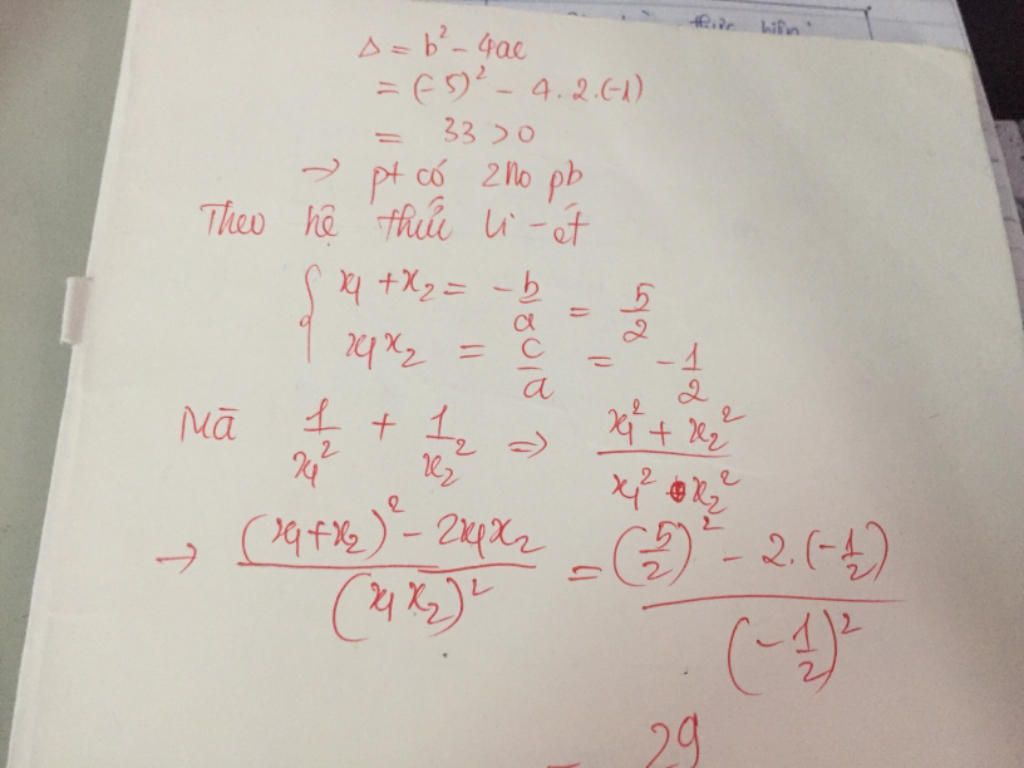 thực hiện
Δ = b² - 4ac
= (-5)² - 4.2.(-1)
= 33 > 0
→ pt có 2 no pb
Theo hệ thức Vi-ét
{ x₁ + x₂ = -b/a = 5/2
x₁x₂ = c/a = -1/2
Mà 1/x₁² + 1/x₂² => (x₁² + x₂²)/(x₁² . x₂²)
→ ((x₁+x₂)² - 2x₁x₂)/(x₁x₂)² = ((5/2)² - 2.(-1/2))/(-1/2)²
= 29